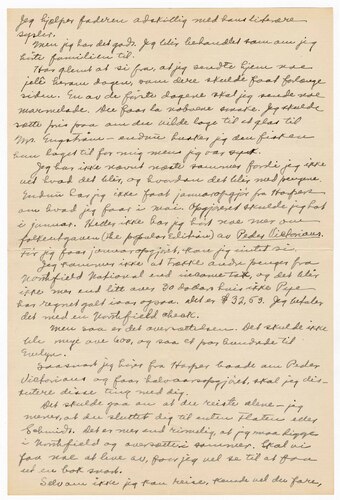 Jeg hjelper faderen adskillig med hans literære
sysler.
Men jeg har det godt. Jeg blir behandlet som om jeg
hørte familien til.
Har glemt at si fra, at jeg sendte hjem noe
jelli herom dagen, som dere skulde faat for længe
siden. En av de første dagene skal jeg sende noe
marmelade. Den faar la naboene smake. Jeg skulde
sette pris paa om du vilde lage til et glas til
Mrs. Engstrøm — endnu husker jeg den fisken
hun laget til for mig mens jeg var syk.
Jeg har ikke nævnt næste sommer fordi jeg ikke
vet hvad det blir, og hvordan det blir med pengene.
Endnu har jeg ikke faat januaropgjør fra Harpers
om hvad jeg faar i mai. Opgjøret skulde jeg hat
i januar. Heller ikke har jeg hørt noe mer om
folkeutgaven (the popular edition) av Peder Victorious.
Før jeg faar januaropgjøret, kan jeg intet si.
Jeg kommer ikke til at trække andre penger fra
Northfield National end income tax, og det blir
ikke mer end litt over 30 dodars hvis ikke Pipe
har regnet galt især ogsaa. Det er $32,69. Jeg betaler
det med en Northfield check.
Men saa er det oversættelsen. Det skulde ikke
bli mye one 400, og saa et par hundrade til
Evelyn.
Saasnart jeg hører fra Harper baade om Peder
Victorious og faar halvaarsopgjøret, skal jeg dis-
kutere disse ting med dig.
Det skulde gaa an at du reiste alene — jeg
mener, at du sluttet dig til enten Flatens eller
Schmidt. Det er mer end rimelig at jeg maa ligge
i Northfield og oversætte i sommer. Skal vi
faa noe at leve av, saa jeg vel se til at faa
ut en bok snart.
Selv om ikke jeg kan reise, kunde vel du fare,